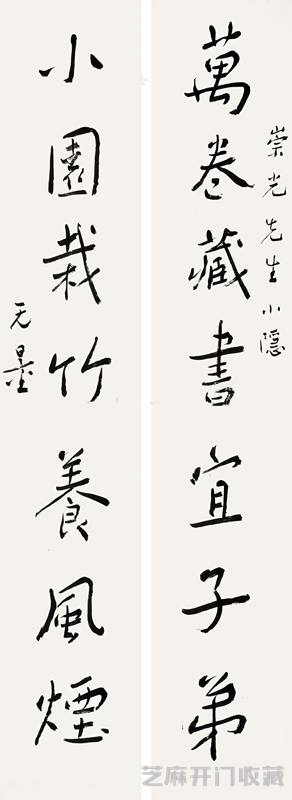 萬卷藏書宜子弟
崇光先生小隱
小園栽竹養風煙
无量
芝麻开门收藏